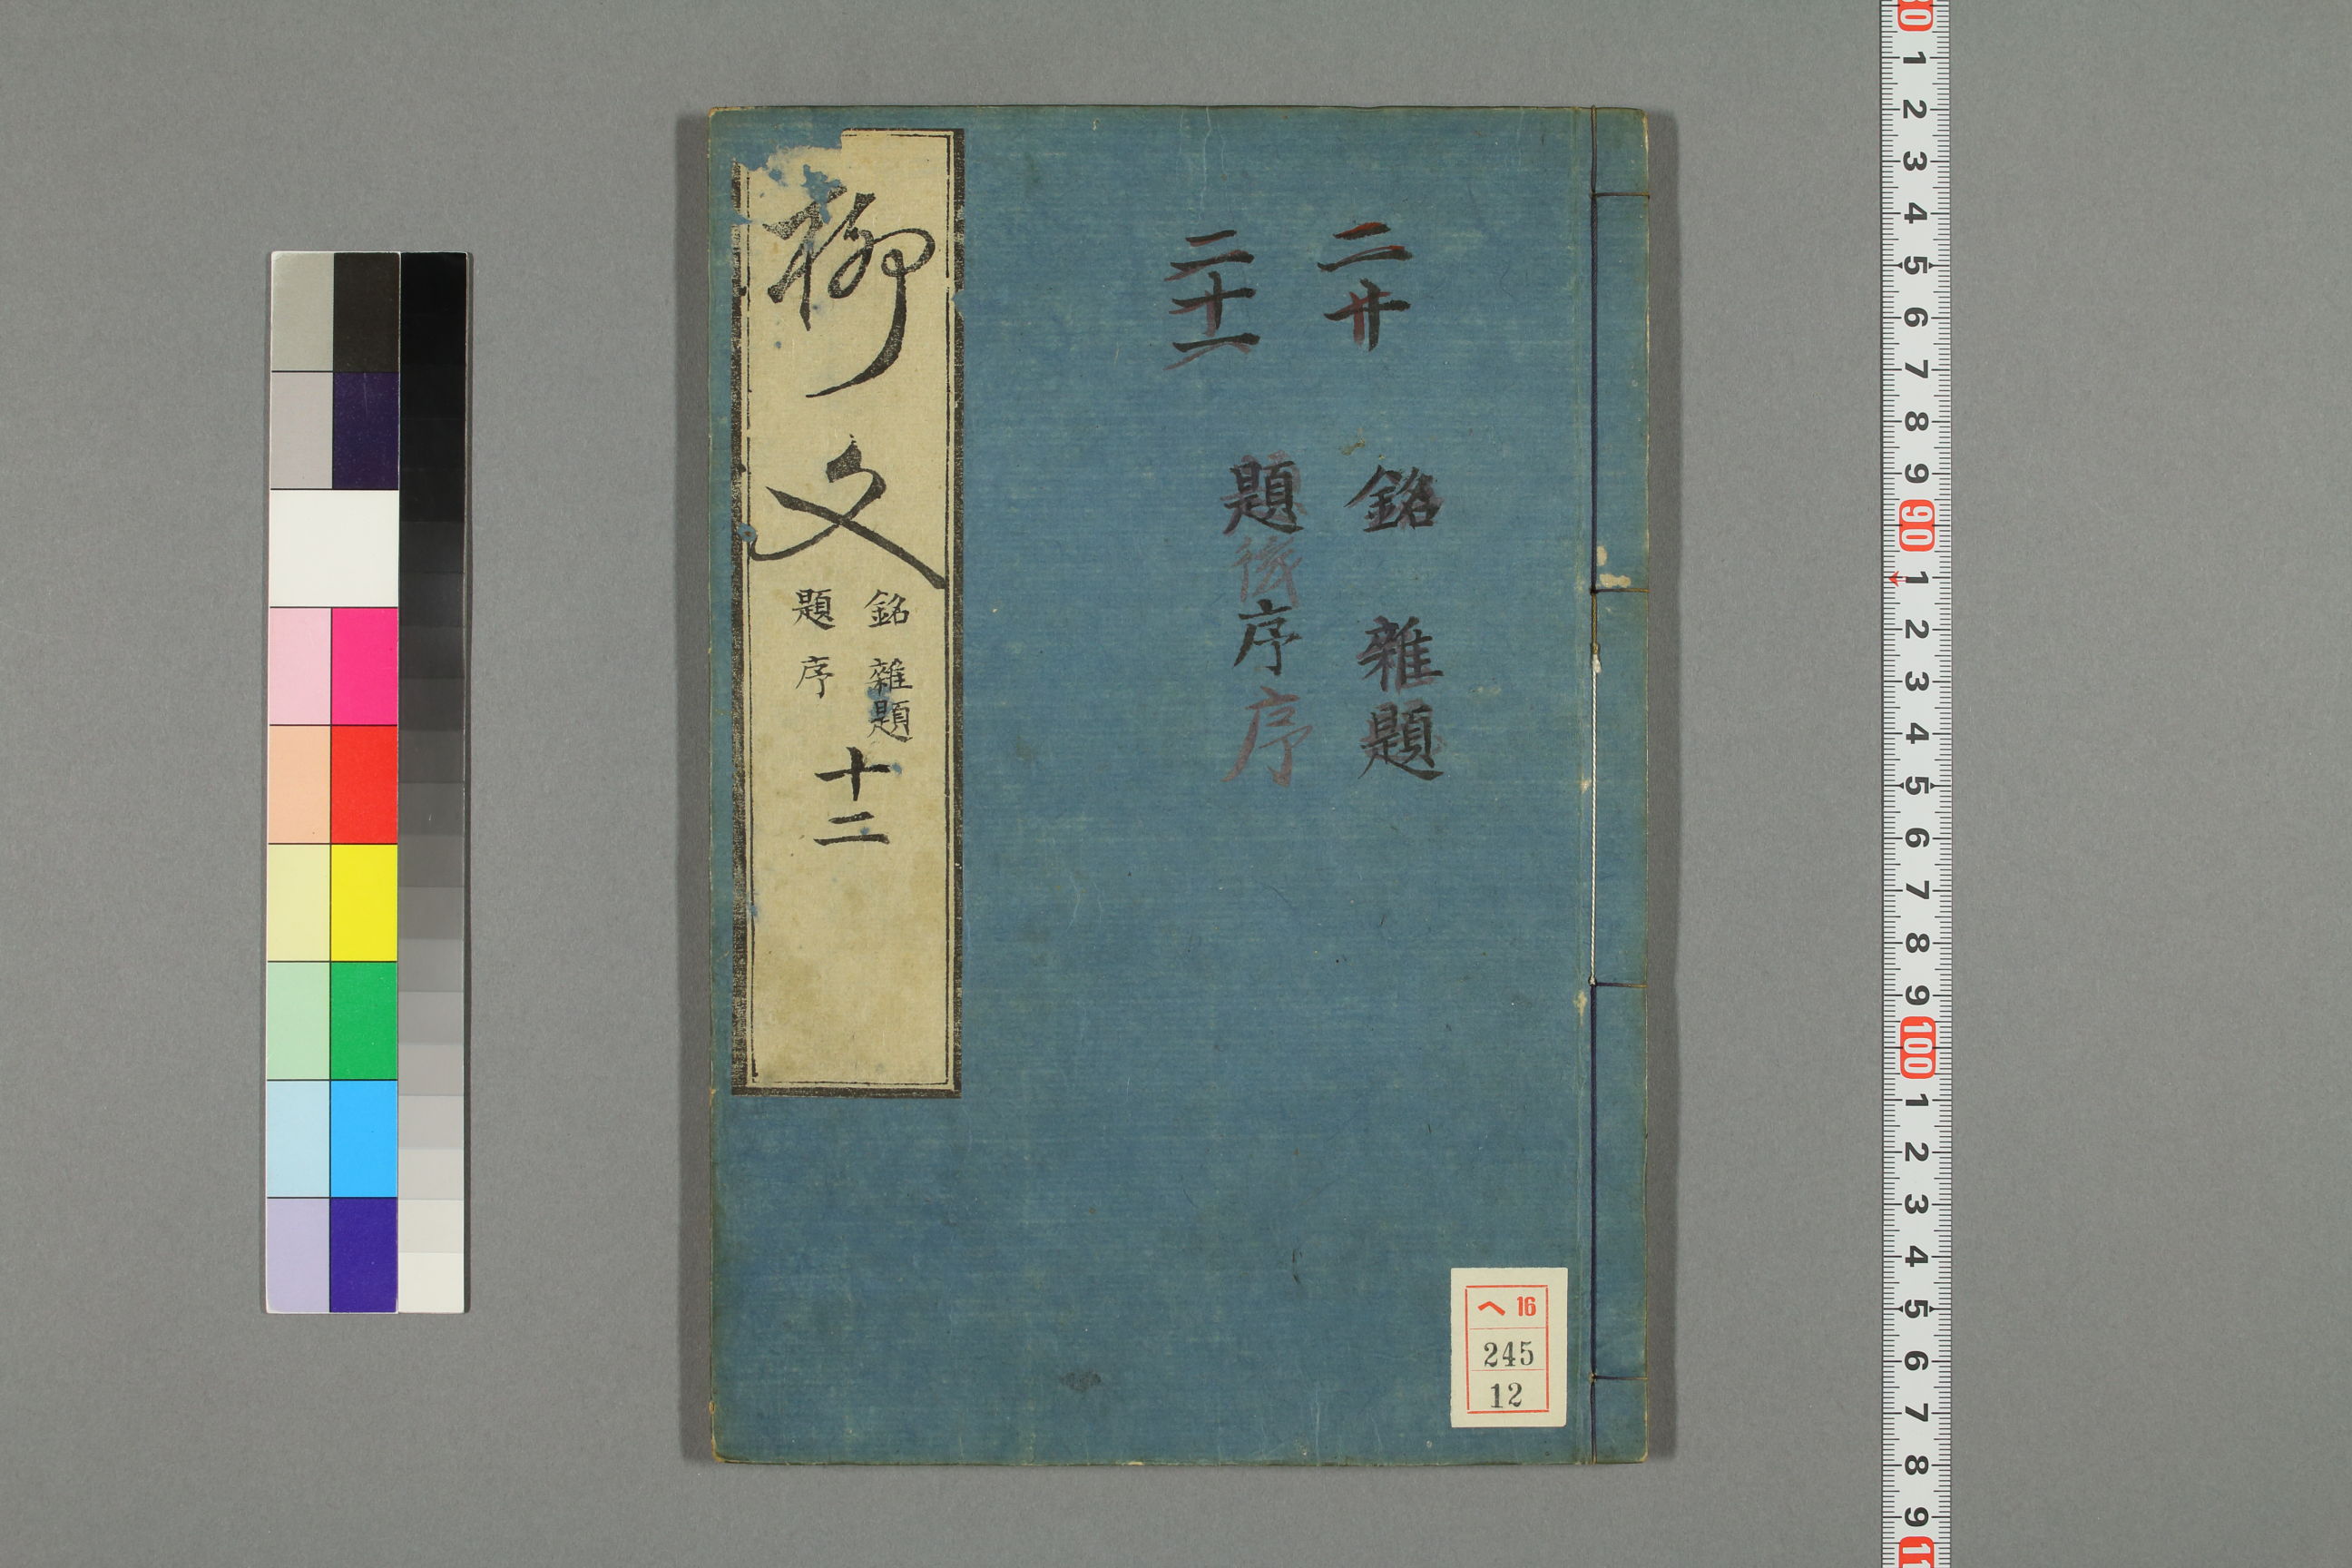 二十 銘 雜題
二十一 題後序序
柳文
銘 雜題
題 序
十二
ヘ 16
245
12
1 2 3 4 5 6 7 8 9 90 1 2 3 4 5 6 7 8 9 100 1 2 3 4 5 6 7 8 9